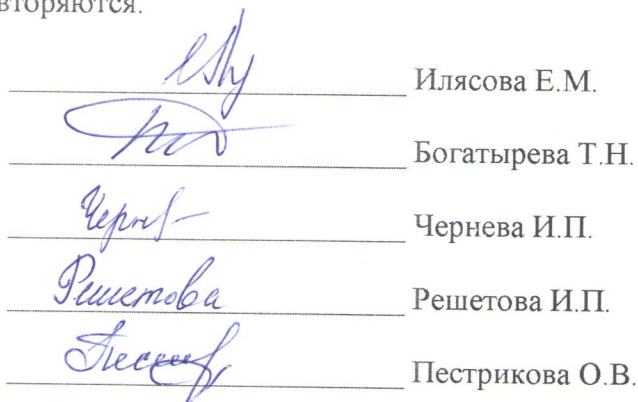 вторяются.
Илясова Е.М.
Богатырева Т.Н.
Чернева И.П.
Решетова Решетова И.П.
Пестрикова О.В.